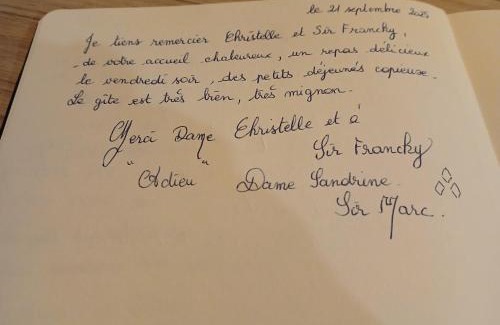 le 21 septembre 2025
Je tiens remercier Christelle et Sir Francky,
de votre accueil chaleureux, un repas délicieux
le vendredi soir, des petits déjeunés copieuse.
Le gîte est trés bien, trés mignon.
Merci Dame Christelle et à
" " Sir Francky
Adieu Dame Sandrine.
Sir Marc.